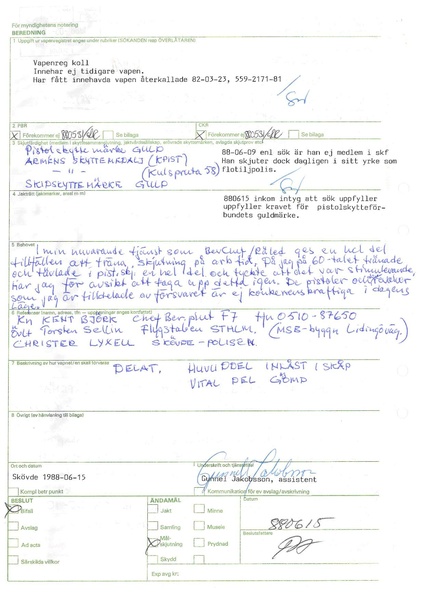 För myndighetens notering
BEREDNING
1 Uppgift ur vapenregistret anges under rubriker (SÖKANDEN resp ÖVERLÅTAREN)
Vapenreg koll
Innehar ej tidigare vapen.
Har fått innehavda vapen återkallade 82-03-23, 559-2171-81
2 PBR
Förekommer ej
Se bilaga
CKR
Förekommer ej
Se bilaga
Pistolskytte märke GULD
ARMÉNS SKYTTEMEDALJ (KPIST)
- " - (Kulspruta 58)
SKIDSKYTTEMÄRKE GULD
88-06-09 enl sök är han ej medlem i skf
Han skjuter dock dagligen i sitt yrke som
flotiljpolis.
880615 inkom intyg att sök uppfyller
uppfyller kravet för
pistolskytteför-
bundets guldmärke.
5 Behovet
I min nuvarande tjänst som BevChef/Räled ges en hel del
tillfällen att träna skjutning på arbtid. Då jag på 60-talet tränade
och tävlade i pist.skj. en hel del och tyckte att det var stimulerande,
har jag för avsikt att taga upp detta igen. De pistoler
som jag är tilldelade av försvaret är ej konkurrenskraftiga i dagens
läge.
Kn KENT BJÖRK Chef Ber.plut F7 tfn 0510-87650
Övlt Torsten Sellin Flygstaben STHLM. (MSB-byggn Lidingöväg.)
CHRISTER LYXELL SKÖVDE-POLISEN.
7 Beskrivning av hur vapnet/en skall förvaras
DELAT. HUVUDDEL INLÅST I SKÅP
VITAL DEL GÖMD
8 Övrigt (ev hänvisning till bilaga)
Ort och datum
Skövde 1988-06-15
Underskrift och tjänstetitel
Gunnel Jakobsson
Gunnel Jakobsson, assistent
Kompl betr punkt
Kommunikation för ev avslag/avskrivning
BESLUT
Bifall
Avslag
Ad acta
Särskilda villkor
ÄNDAMÅL
Jakt
Samling
Målskjutning
Skydd
Minne
Museie
Prydnad
Exp avg kr:
880615